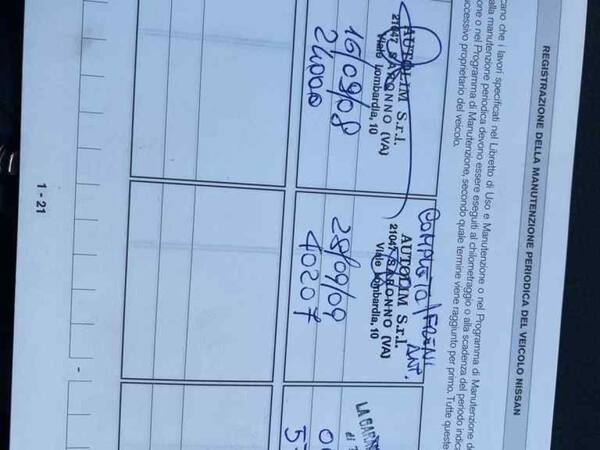 REGISTRAZIONE DELLA MANUTENZIONE PERIODICA DEL VEICOLO NISSAN
cano che i lavori specificati nel Libretto di Uso e Manutenzione o nel Programma di Manutenzione de
alla manutenzione periodica devono essere eseguiti al chilometraggio o alla scadenza del periodo indica
zione o nel Programma di Manutenzione, secondo quale termine viene raggiunto per primo. Tutte queste
successivo proprietario del veicolo.
AUTOLIM S.r.l.
21047 SARONNO (VA)
Viale Lombardia, 10
16/09/08
24000
COMPLETO/FRENI
ANT.
AUTOLIM S.r.l.
21047 SARONNO (VA)
Viale Lombardia, 10
28/09/09
40207
LA
di
1 - 21